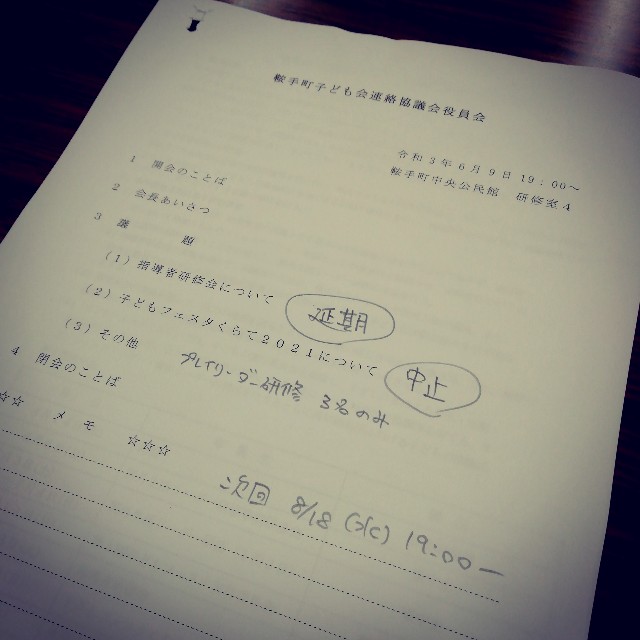 鞍手町子ども会連絡協議会役員会
令和3年6月9日19:00～
鞍手町中央公民館 研修室4
1 開会のことば
2 会長あいさつ
3 議 題
(1)指導者研修会について 延期
(2)子どもフェスタくらて2021について 中止
(3)その他 プレイリーダー研修 3名のみ
4 閉会のことば
☆☆ メ モ ☆☆☆
次回 8/18(水) 19:00ー